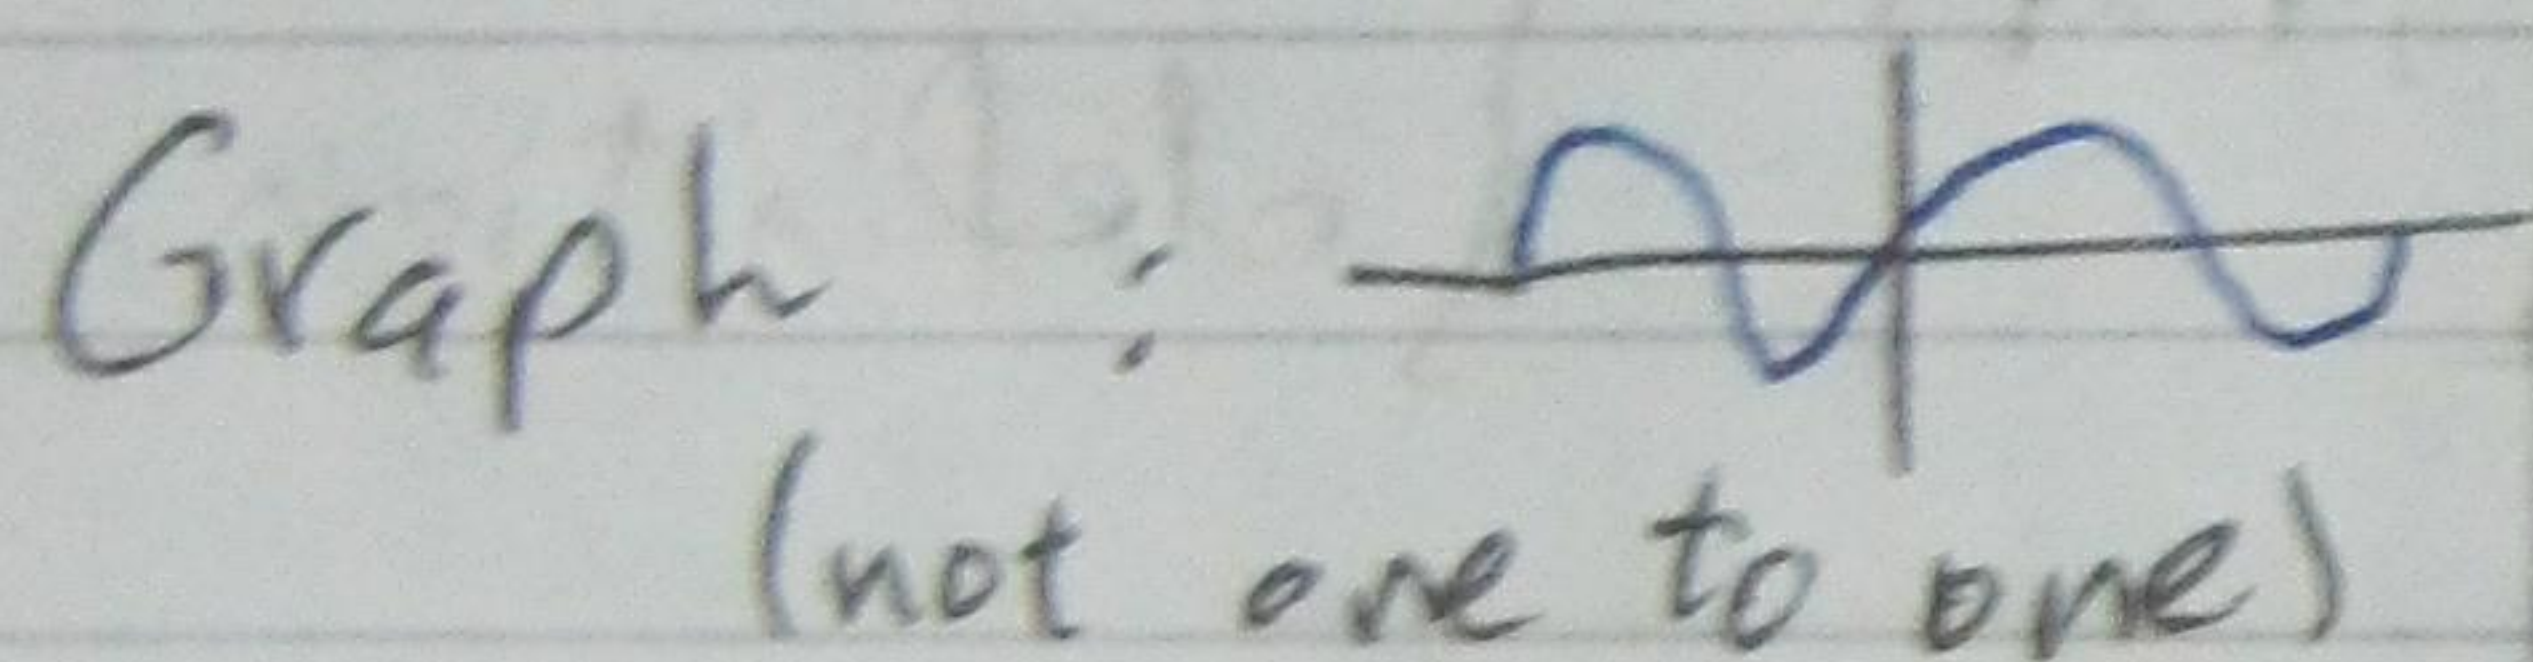 Graph :
(not one to one)